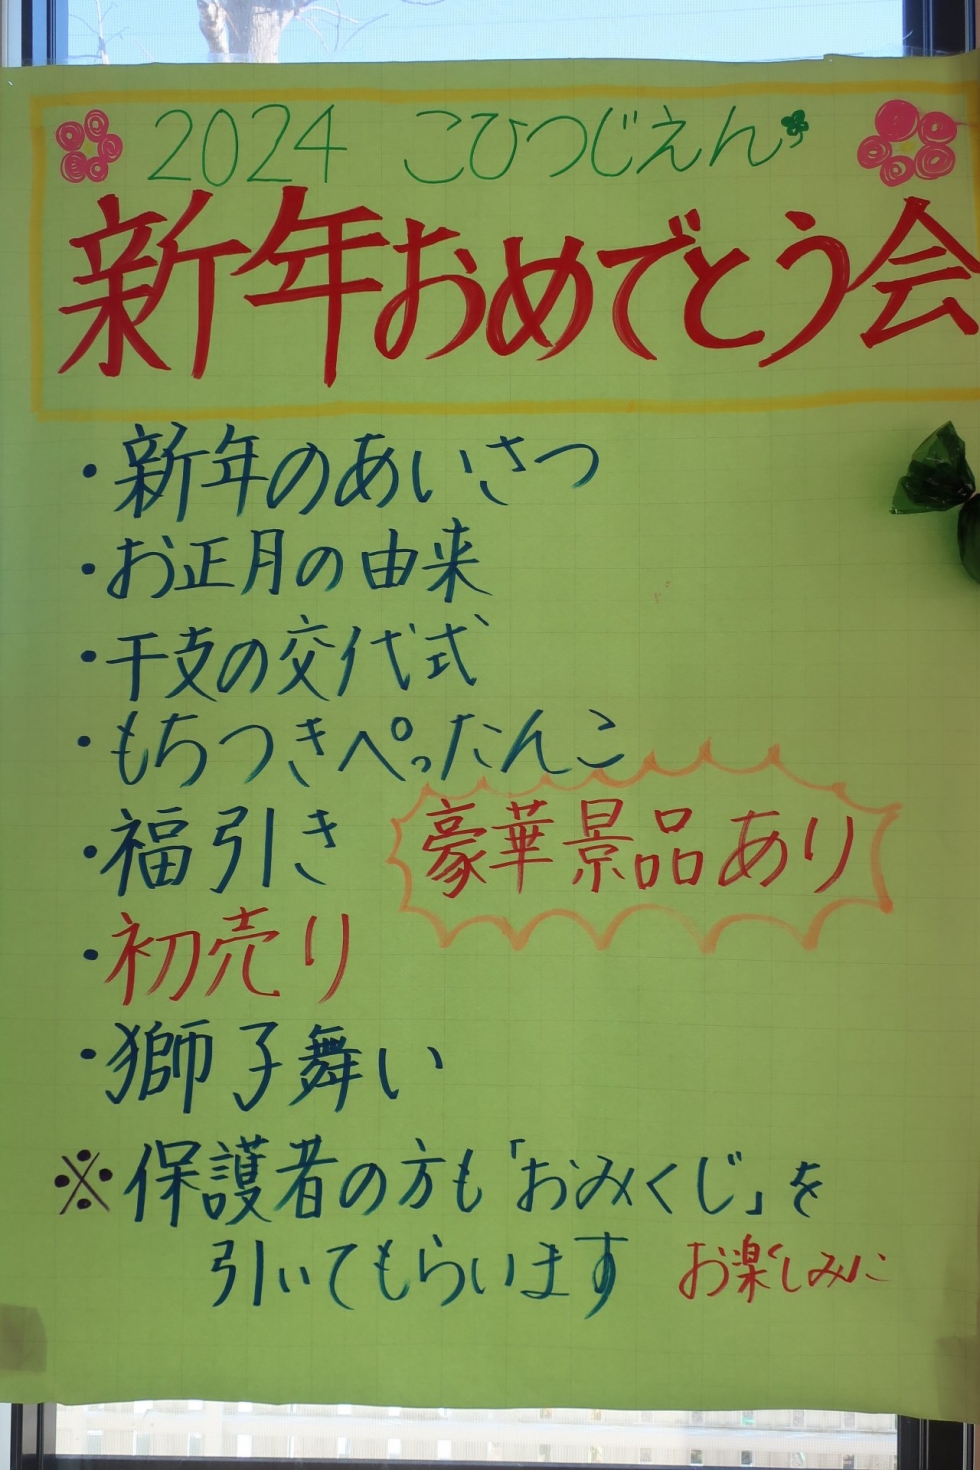 2024 こひつじえん
新年おめでとう会
・新年のあいさつ
・お正月の由来
・干支の交代式
・もちつきぺったんこ
・福引き 豪華景品あり
・初売り
・獅子舞い
※保護者の方も「おみくじ」を
引いてもらいます お楽しみに